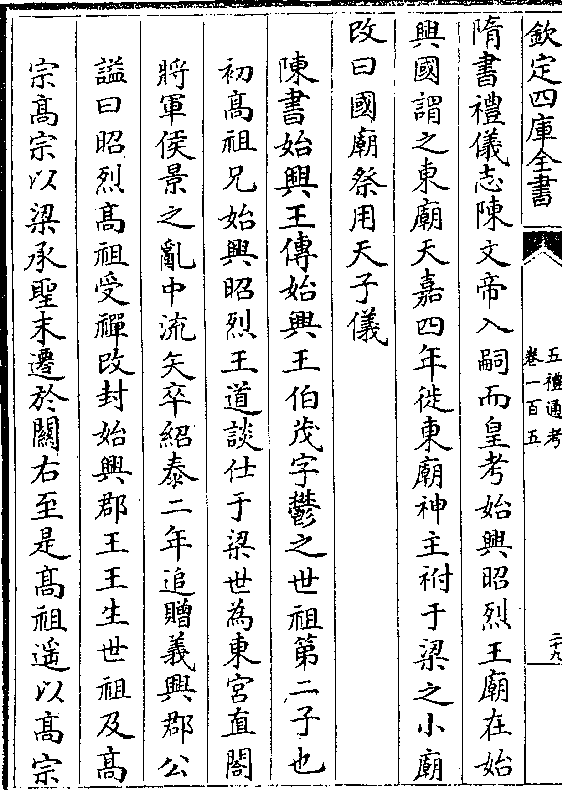 欽定四庫全書
五禮通考
卷一百五
二十九
隋書禮儀志陳文帝入嗣而皇考始興昭烈王廟在始
興國謂之東廟天嘉四年徙東廟神主祔于梁之小廟
改曰國廟祭用天子儀
陳書始興王傳始興王伯茂字鬱之世祖第二子也
初高祖兄始興昭烈王道談仕于梁世為東宮直閤
將軍侯景之亂中流矢卒紹泰二年追贈義興郡公
諡曰昭烈高祖受禪改封始興郡王王生世祖及高
宗高宗以梁承聖末遷於關右至是高祖遥以高宗